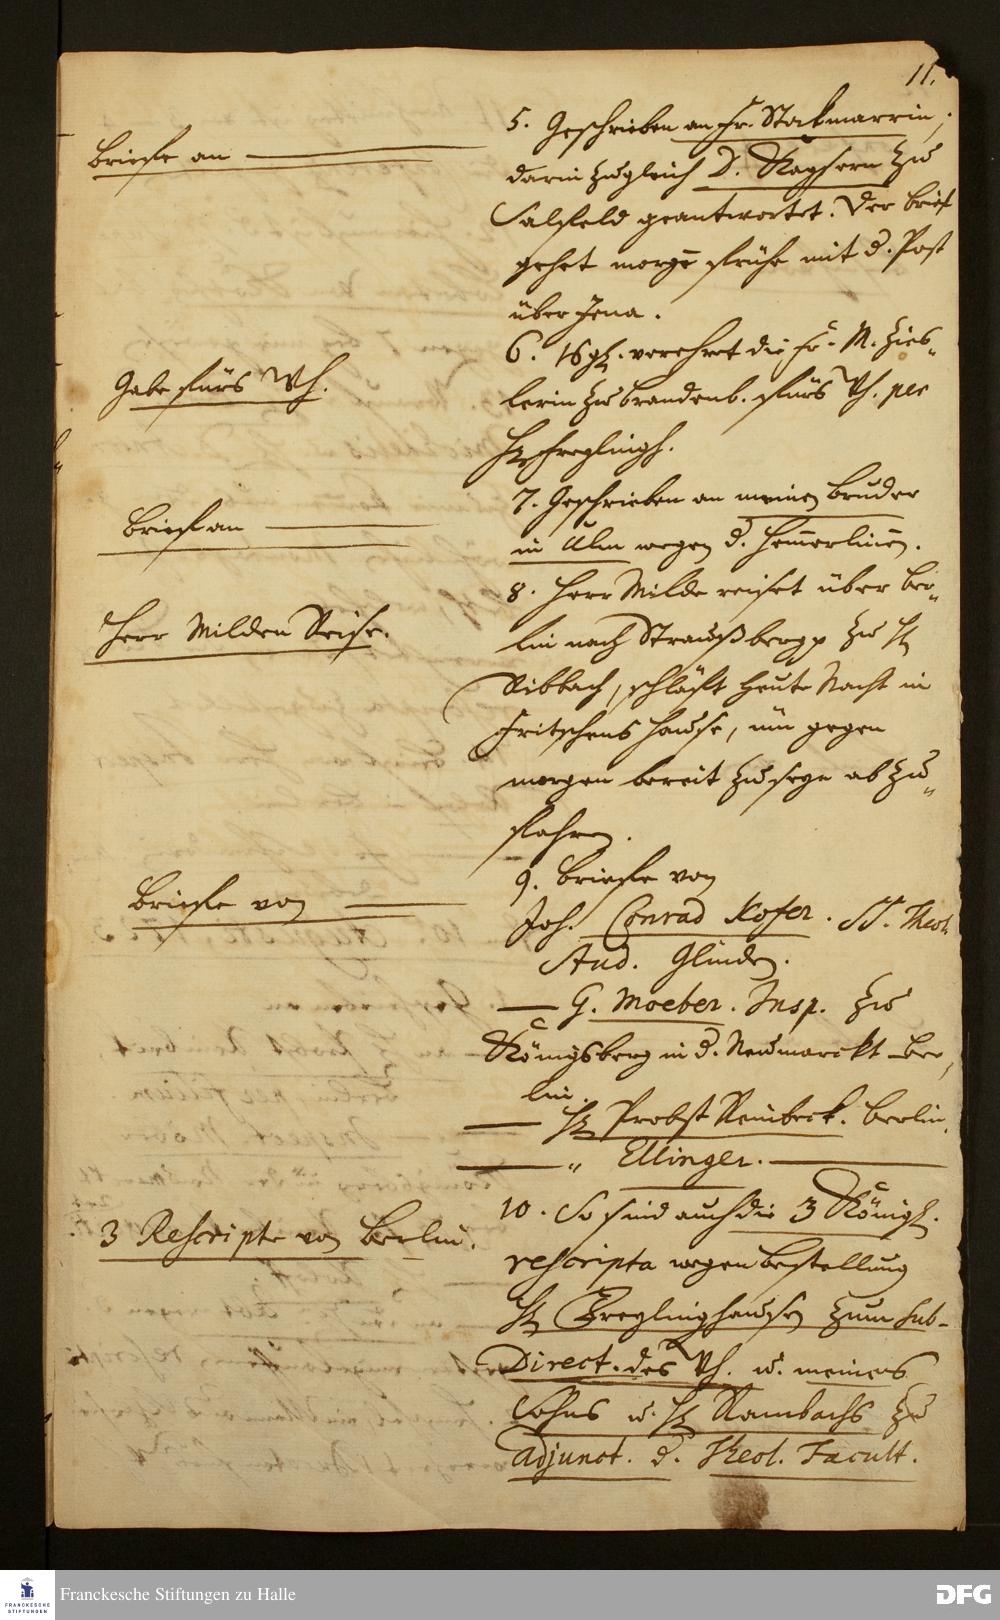 11.
Briefe an
5. Geschrieben an Fr. Stockmarrin,
darin zugleich D. Kaysern zu
Salfeld geantwortet. Der brief
gehet morgē frühe mit d. Post
über Jena.
Gabe fürs Wh.
6. 16 gl. verehret die Fr. M. Zieg-
lerin zu brandenb. fürs Wh. per
H. Freylingh.
Brief an
7. Geschrieben an meinen bruder
in Ulm wegen d. Hem̄erlin̄en.
Herr Milden Reise.
8. Herr Milde reiset über ber-
lin nach Straußberg zu H
Ribbach, schläfft heute Nacht in
Fritschens hause, um gegen
morgen bereit zu seyn ab zu
fahren.
Briefe von
9. briefe von
Joh. Conrad Kofer. SS. Theol.
Stud. Glinde.
G. Moeber. Insp. zu
Königsberg in d. Neumarckt ber-
lin.
H Probst Reinbeck. berlin.
" Ellinger.
3 Rescripte von berlin.
10. So sind auch die 3 Königl.
rescripta wegen bestellung
H Freylinghausen zum Sub-
Direct. des Wh. u. meines
Sohns u. H Rambachs zu
adjunct. d. Theol. Facult.
FRANCKESCHE
STIFTUNGEN
Franckesche Stiftungen zu Halle
DFG